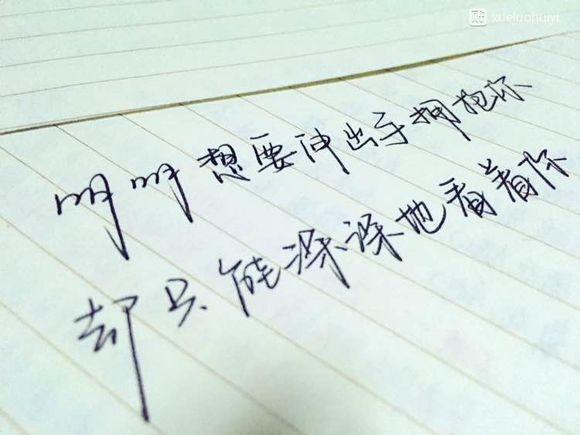 xueluohuiyi
明明想要冲出手拥抱你
却只能深深地看着你